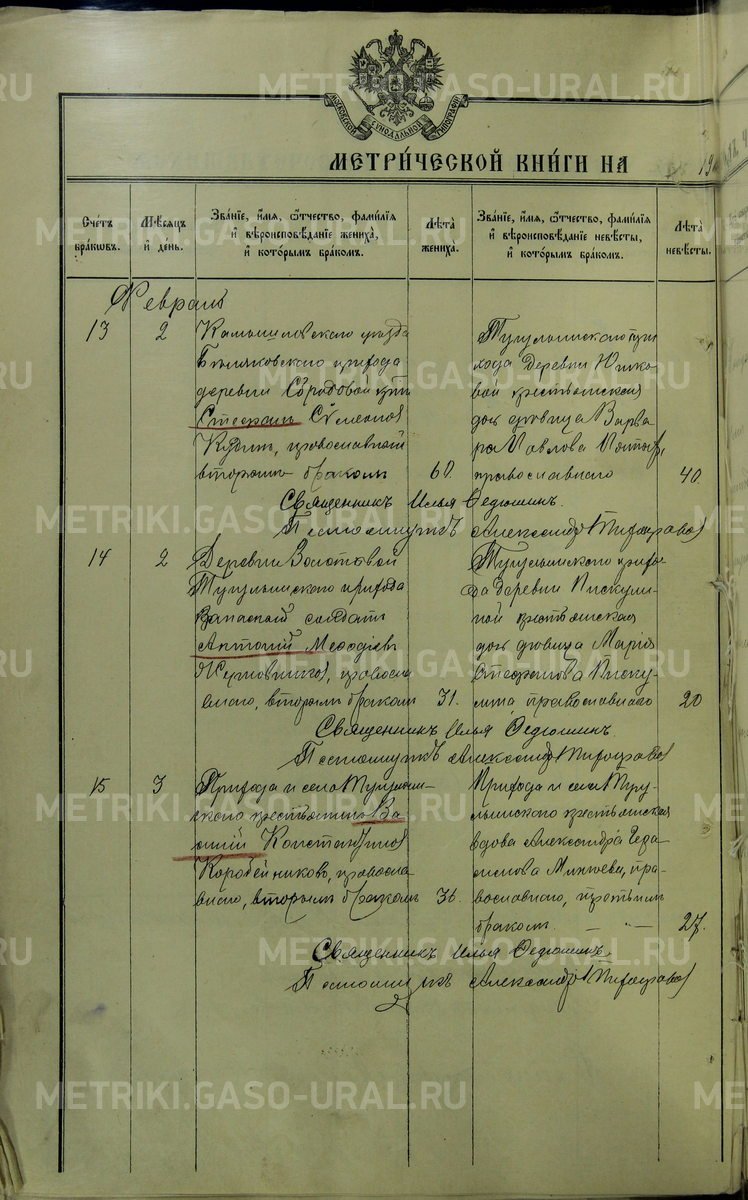 МОСКОВСКОЙ СУНОДАЛЬНОЙ ТИПОГРАФІИ
МЕТРИ́ЧЕСКОЙ КНИ́ГИ НА 19
Сче́тъ бра́кѡвъ.
Мѣ́сяцъ и҆ де́нь.
Зва́нїе, и҆́мѧ, ѻ҆́тчество, фами́лїѧ и҆ вѣроисповѣ́данїе жениха̀, и҆ кото́рымъ бра́комъ.
Лѣ́та жениха̀.
Зва́нїе, и҆́мѧ, ѻ҆́тчество, фами́лїѧ и҆ вѣроисповѣ́данїе невѣ́сты, и҆ кото́рымъ бра́комъ.
Лѣ́та невѣ́сты.
Февраль
13
2
Камышловскаго уѣзда
прихода
деревни кре
Стефанъ Сѵмеоновъ
православный
вторымъ бракомъ
60.
Тугулымскаго при
хода деревни Юшко
вой крестьянская
дочь дѣвица Варва
ра Павлова
православнаго
40.
Священникъ Илья Федюшинъ.
Псаломщикъ Александръ
14
2
Деревни Золотовой
Тугулымскаго прихода
запасный солдатъ
Антоній Меѳодіевъ
православ
наго, вторымъ бракомъ
31.
Тугулымскаго прихо
да деревни Пискули
ной крестьянская
дочь дѣвица Марія
Стефанова Писку
лина, православнаго
20
Священникъ Илья Федюшинъ.
Псаломщикъ Александръ
15
3
Прихода и села Тугулым
скаго крестьянинъ Ва
силій Константиновъ
Коробейниковъ, правосла
внаго, вторымъ бракомъ
36.
Прихода и села Тугу
лымского крестьянская
вдова Александра Гера
симова пра
вославнаго, третьимъ
бракомъ. — " —
27.
Священникъ Илья Федюшинъ.
Псаломщикъ Александръ
METRIKI.GASO-URAL.RU